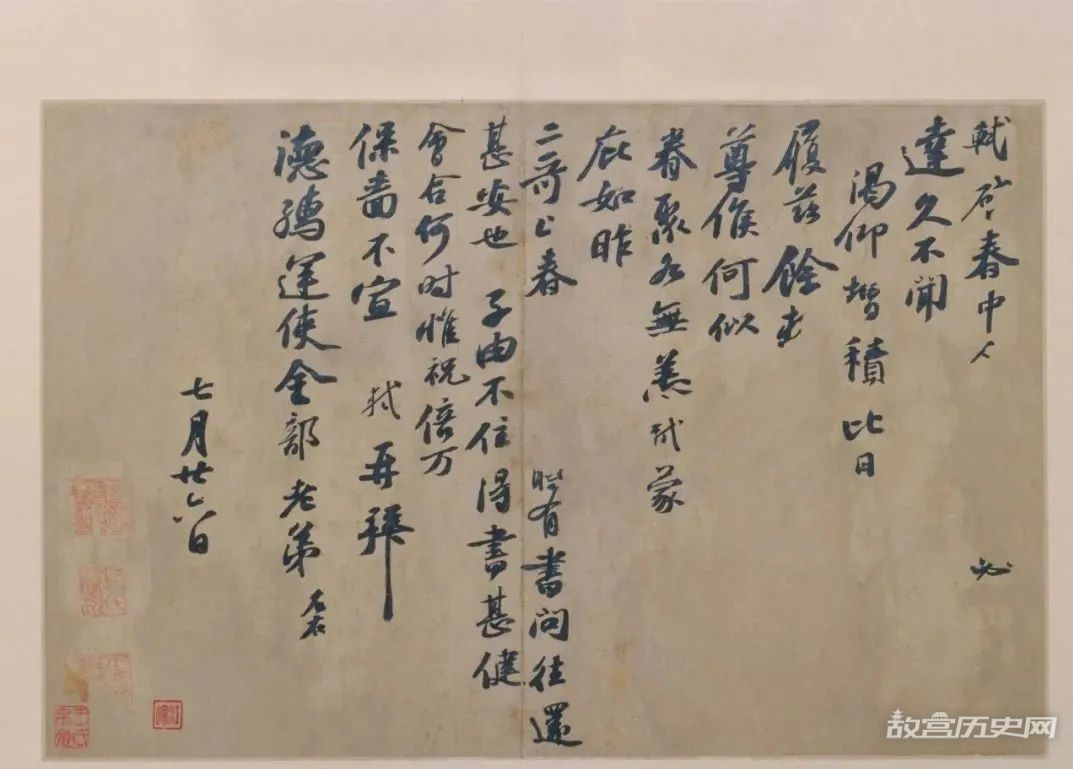 軾啓春中 必
達久不聞
渴仰增積比日
履茲餘
尊候何似
眷聚各無恙軾蒙
庇如昨
二哥上春 時有書問往還
甚安也 子由不住得書甚健
會合何时惟祝倍万
保嗇不宣 軾再拜
德孺運使金部老弟
七月廿六日
故宫历史网